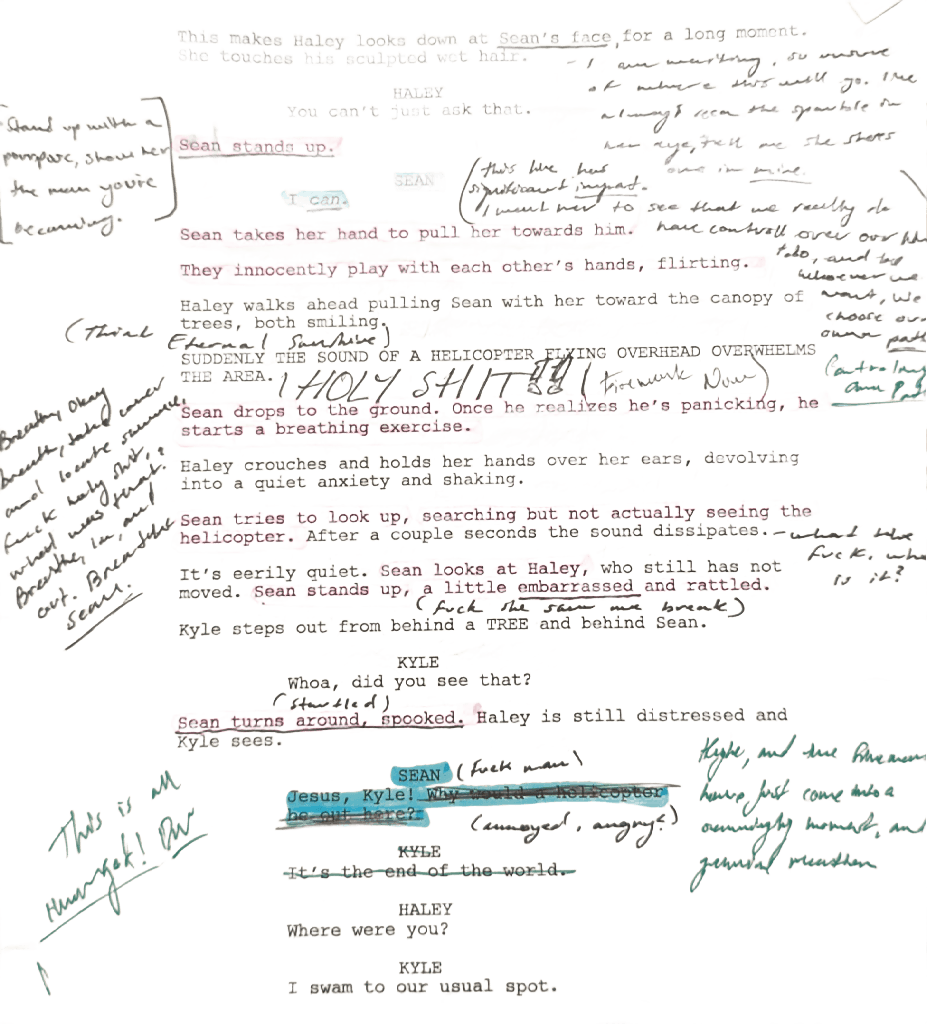 This makes Haley looks down at Sean's face, for a long moment.
She touches his sculpted wet hair.
- I am
of where this will go. I've
always seen the sparkle in
her eye, tell me she sees
one in mine.
HALEY
You can't just ask that.
Stand up with a
pompare, show her
the man you're
becoming.
Sean stands up.
SEAN
I can.
(this line has
significant impact.
I want her to see that we really do
have controll over our
and
whoever we
want, we
choose our
own path
Sean takes her hand to pull her towards him.
They innocently play with each other's hands, flirting.
Haley walks ahead pulling Sean with her toward the canopy of
trees, both smiling.
(Think
Eternal Sunshine)
SUDDENLY THE SOUND OF A HELICOPTER FLYING OVERHEAD OVERWHELMS
THE AREA.
HOLY SHIT!!
(Firework Now)
own
Sean drops to the ground. Once he realizes he's panicking, he
starts a breathing exercise.
Breathe, Okay
breath, take cover
and locate
fuck holy shit,
what was that.
Breathe, in, and
out. Breathe
Sean.
Haley crouches and holds her hands over her ears, devolving
into a quiet anxiety and shaking.
Sean tries to look up, searching but not actually seeing the
helicopter. After a couple seconds the sound dissipates.
- what the
fuck,
is it?
It's eerily quiet. Sean looks at Haley, who still has not
moved. Sean stands up, a little embarrassed and rattled.
(fuck she saw me break)
Kyle steps out from behind a TREE and behind Sean.
KYLE
Whoa, did you see that?
(startled)
Sean turns around, spooked. Haley is still distressed and
Kyle sees.
SEAN
(fuck man)
Jesus, Kyle! Why would a helicopter
be out here?
(annoyed, angry?)
KYLE
It's the end of the world.
and the
have just come into a
moment, and
This is all
HALEY
Where were you?
KYLE
I swam to our usual spot.